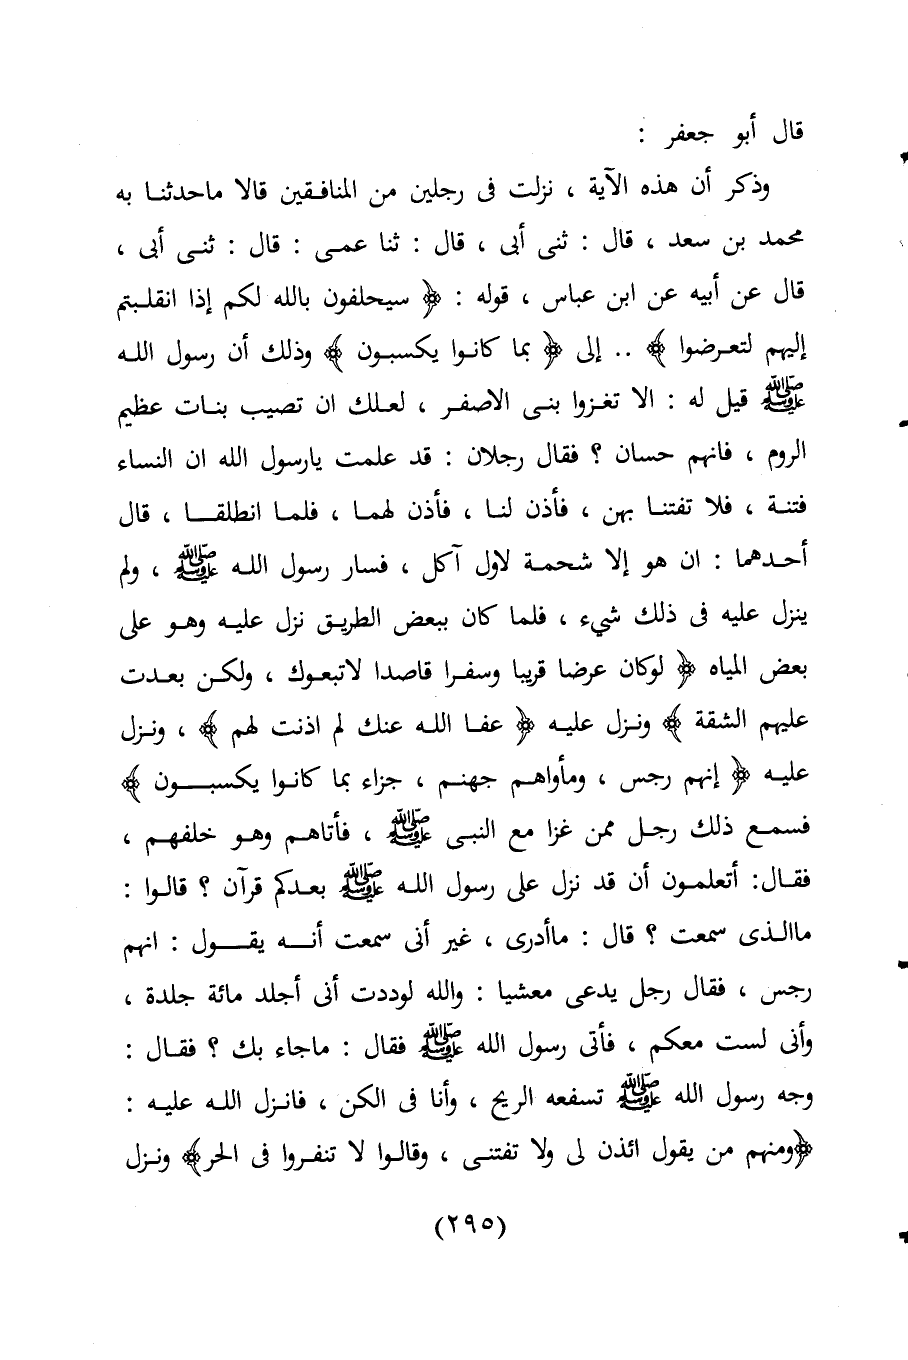 قال أبو جعفر :
وذكر أن هذه الآية ، نزلت فى رجلين من المنافقين قالا ماحدثنا به
محمد بن سعد ، قال : ثنى أبى ، قال : ثنا عمى : قال : ثنى أبى ،
قال عن أبيه عن ابن عباس ، قوله : ﴿ سيحلفون بالله لكم إذا انقلبتم
إليهم لتعرضوا ﴾ .. إلى ﴿ بما كانوا يكسبون ﴾ وذلك أن رسول الله
ﷺ قيل له : الا تغزوا بنى الاصفر ، لعلك ان تصيب بنات عظيم
الروم ، فانهم حسان ؟ فقال رجلان : قد علمت يارسول الله ان النساء
فتنة ، فلا تفتنا بهن ، فأذن لنا ، فأذن لهما ، فلما انطلقا ، قال
أحدهما : ان هو إلا شحمة لاول آكل ، فسار رسول الله ﷺ ، ولم
ينزل عليه فى ذلك شيء ، فلما كان ببعض الطريق نزل عليه وهو على
بعض المياه ﴿ لوكان عرضا قريبا وسفرا قاصدا لاتبعوك ، ولكن بعدت
عليهم الشقة ﴾ ونزل عليه ﴿ عفا الله عنك لم اذنت لهم ﴾ ، ونزل
عليه ﴿ إنهم رجس ، ومأواهم جهنم ، جزاء بما كانوا يكسبون ﴾
فسمع ذلك رجل ممن غزا مع النبى ﷺ ، فأتاهم وهو خلفهم ،
فقال: أتعلمون أن قد نزل على رسول الله ﷺ بعدكم قرآن ؟ قالوا :
ماالذى سمعت ؟ قال : ماأدرى ، غير أنى سمعت أنه يقول : انهم
رجس ، فقال رجل يدعى معشيا : والله لوددت أنى أجلد مائة جلدة ،
وأنى لست معكم ، فأتى رسول الله ﷺ فقال : ماجاء بك ؟ فقال :
وجه رسول الله ﷺ تسفعه الريح ، وأنا فى الكن ، فانزل الله عليه :
﴿ومنهم من يقول ائذن لى ولا تفتنى ، وقالوا لا تنفروا فى الحر﴾ ونزل
(٢٩٥)